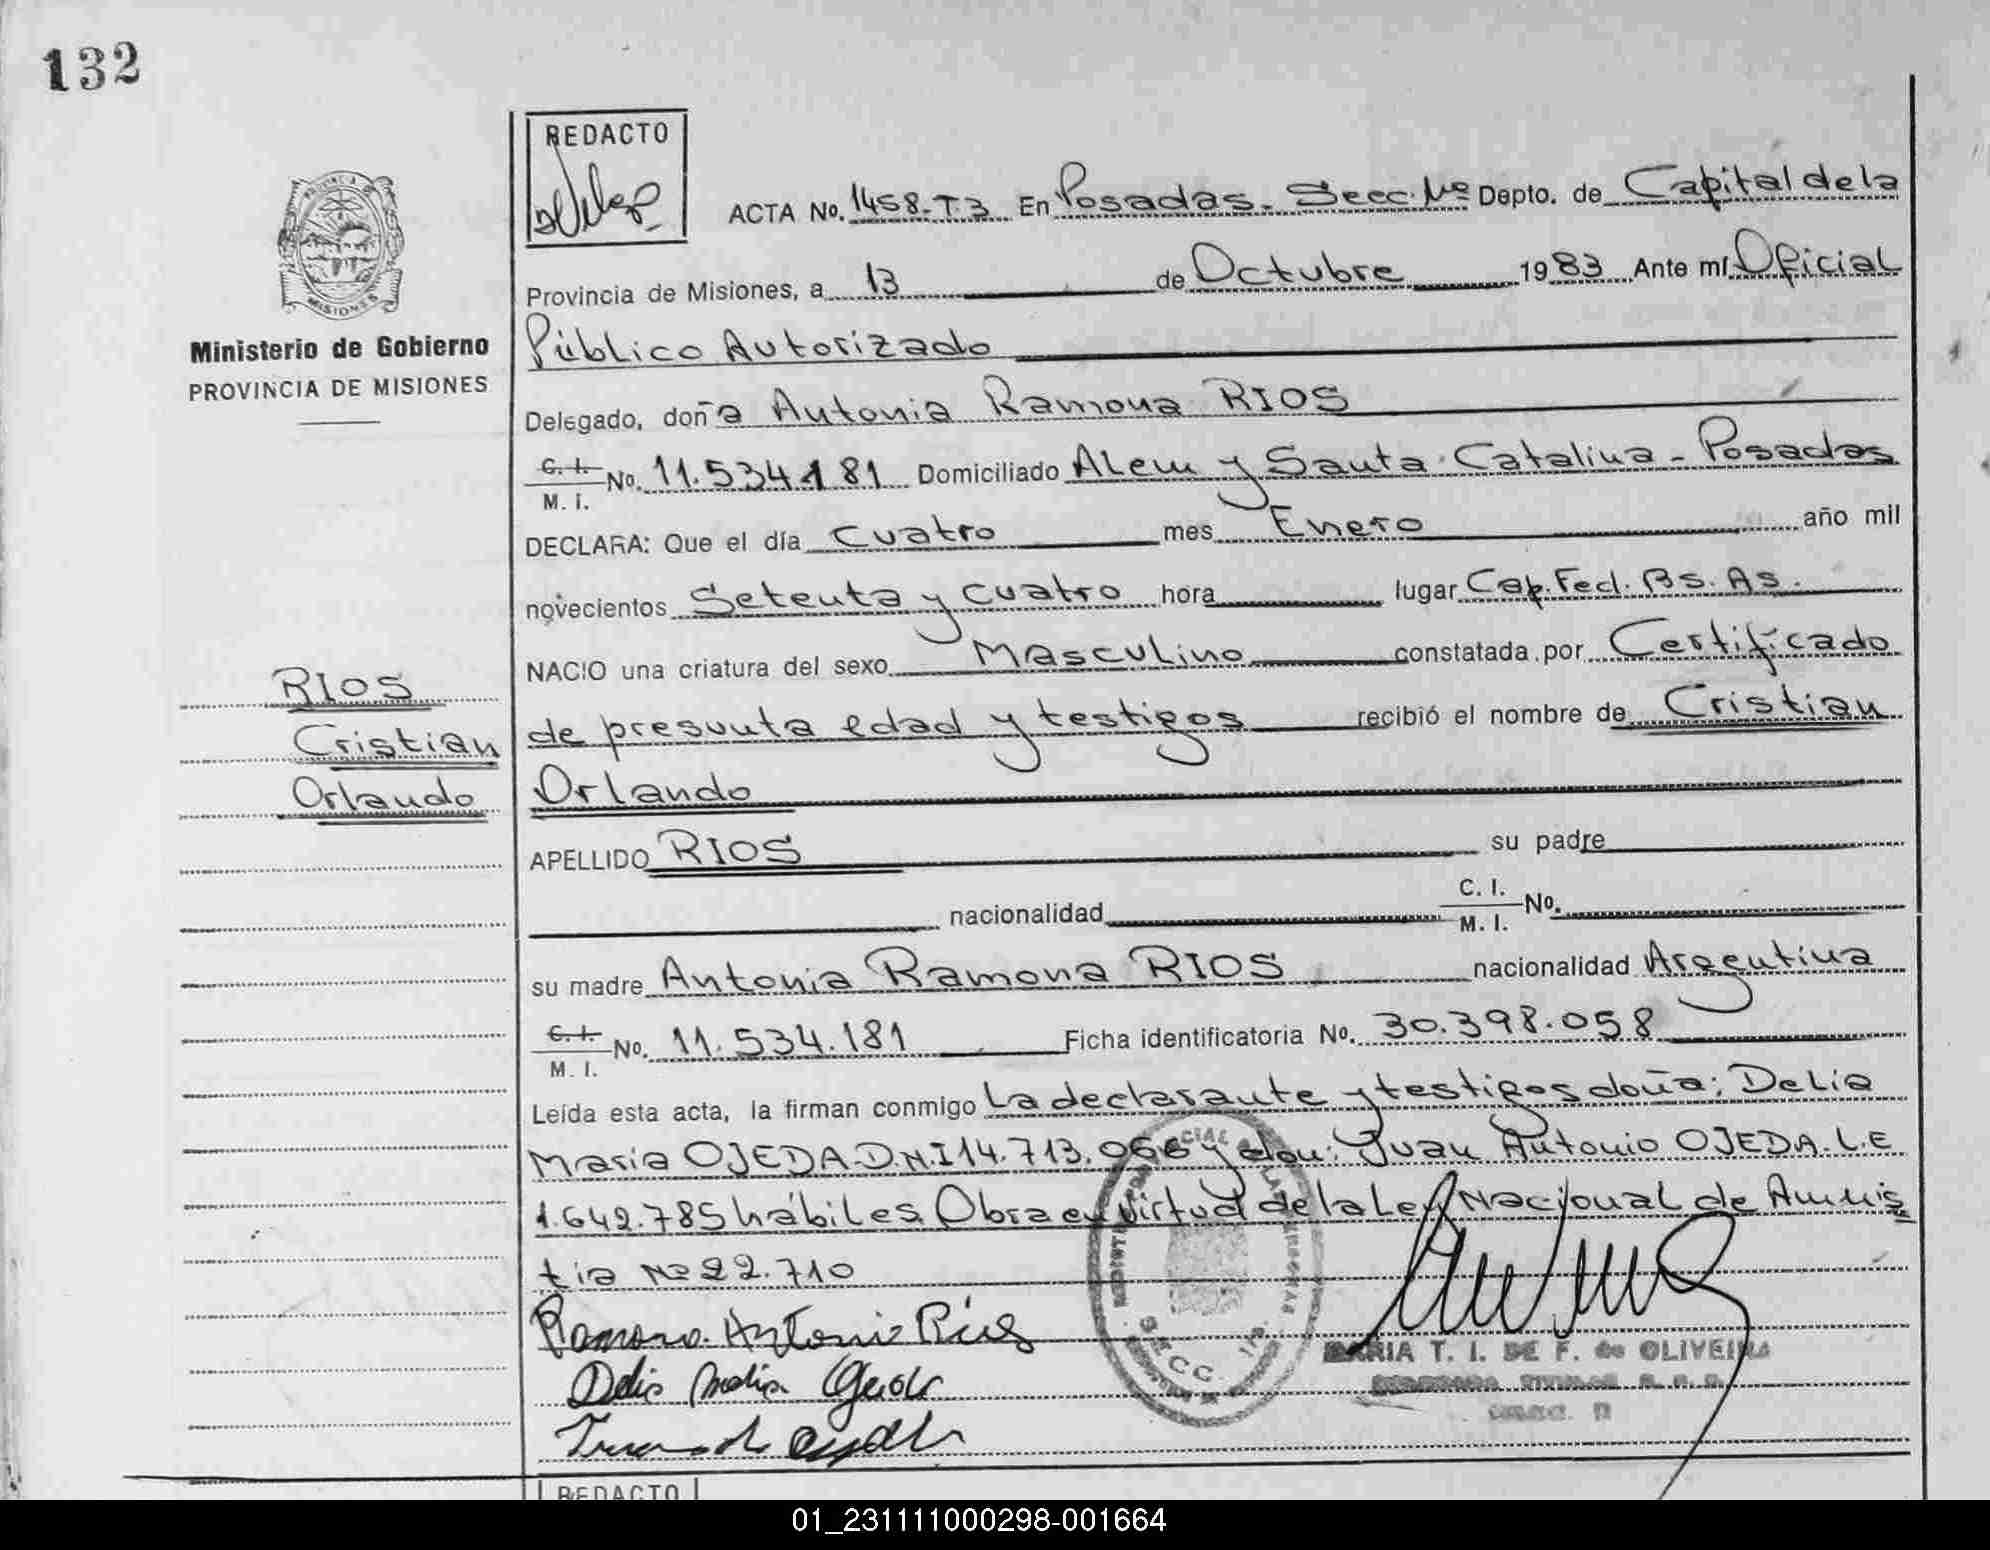 132
REDACTO
ACTA No. 1458-T.3 En Posadas. Secc. Nº Depto. de Capital de la
Provincia de Misiones, a 13 de Octubre 1983 Ante mí Oficial
Público Autorizado
Ministerio de Gobierno
PROVINCIA DE MISIONES
Delegado, doña Antonia Ramona RIOS
C. I. M. I. No. 11.534.181 Domiciliado Alem y Santa Catalina - Posadas
DECLARA: Que el día cuatro mes Enero año mil
novecientos Setenta y cuatro hora lugar Cap. Fed. Bs. As.
NACIO una criatura del sexo Masculino constatada por Certificado
de presunta edad y testigos recibió el nombre de Cristian
Orlando
RIOS
Cristian
Orlando
APELLIDO RIOS su padre
nacionalidad C. I. M. I. No.
su madre Antonia Ramona RIOS nacionalidad Argentina
C. I. M. I. No. 11.534.181 Ficha identificatoria No. 30.398.058
Leída esta acta, la firman conmigo La declarante y testigos doña: Delia
Maria OJEDA-D.N.I 14.713.066 y don: Juan Antonio OJEDA.L.E
1.642.785 hábiles. Obra en virtud de la Ley Nacional de Amnis
tia Nº 22.710
Ramona Antonia Rios
Delia Maria Ojeda
MARIA T. I. DE F. de OLIVEIRA
REDACTO
01_231111000298-001664